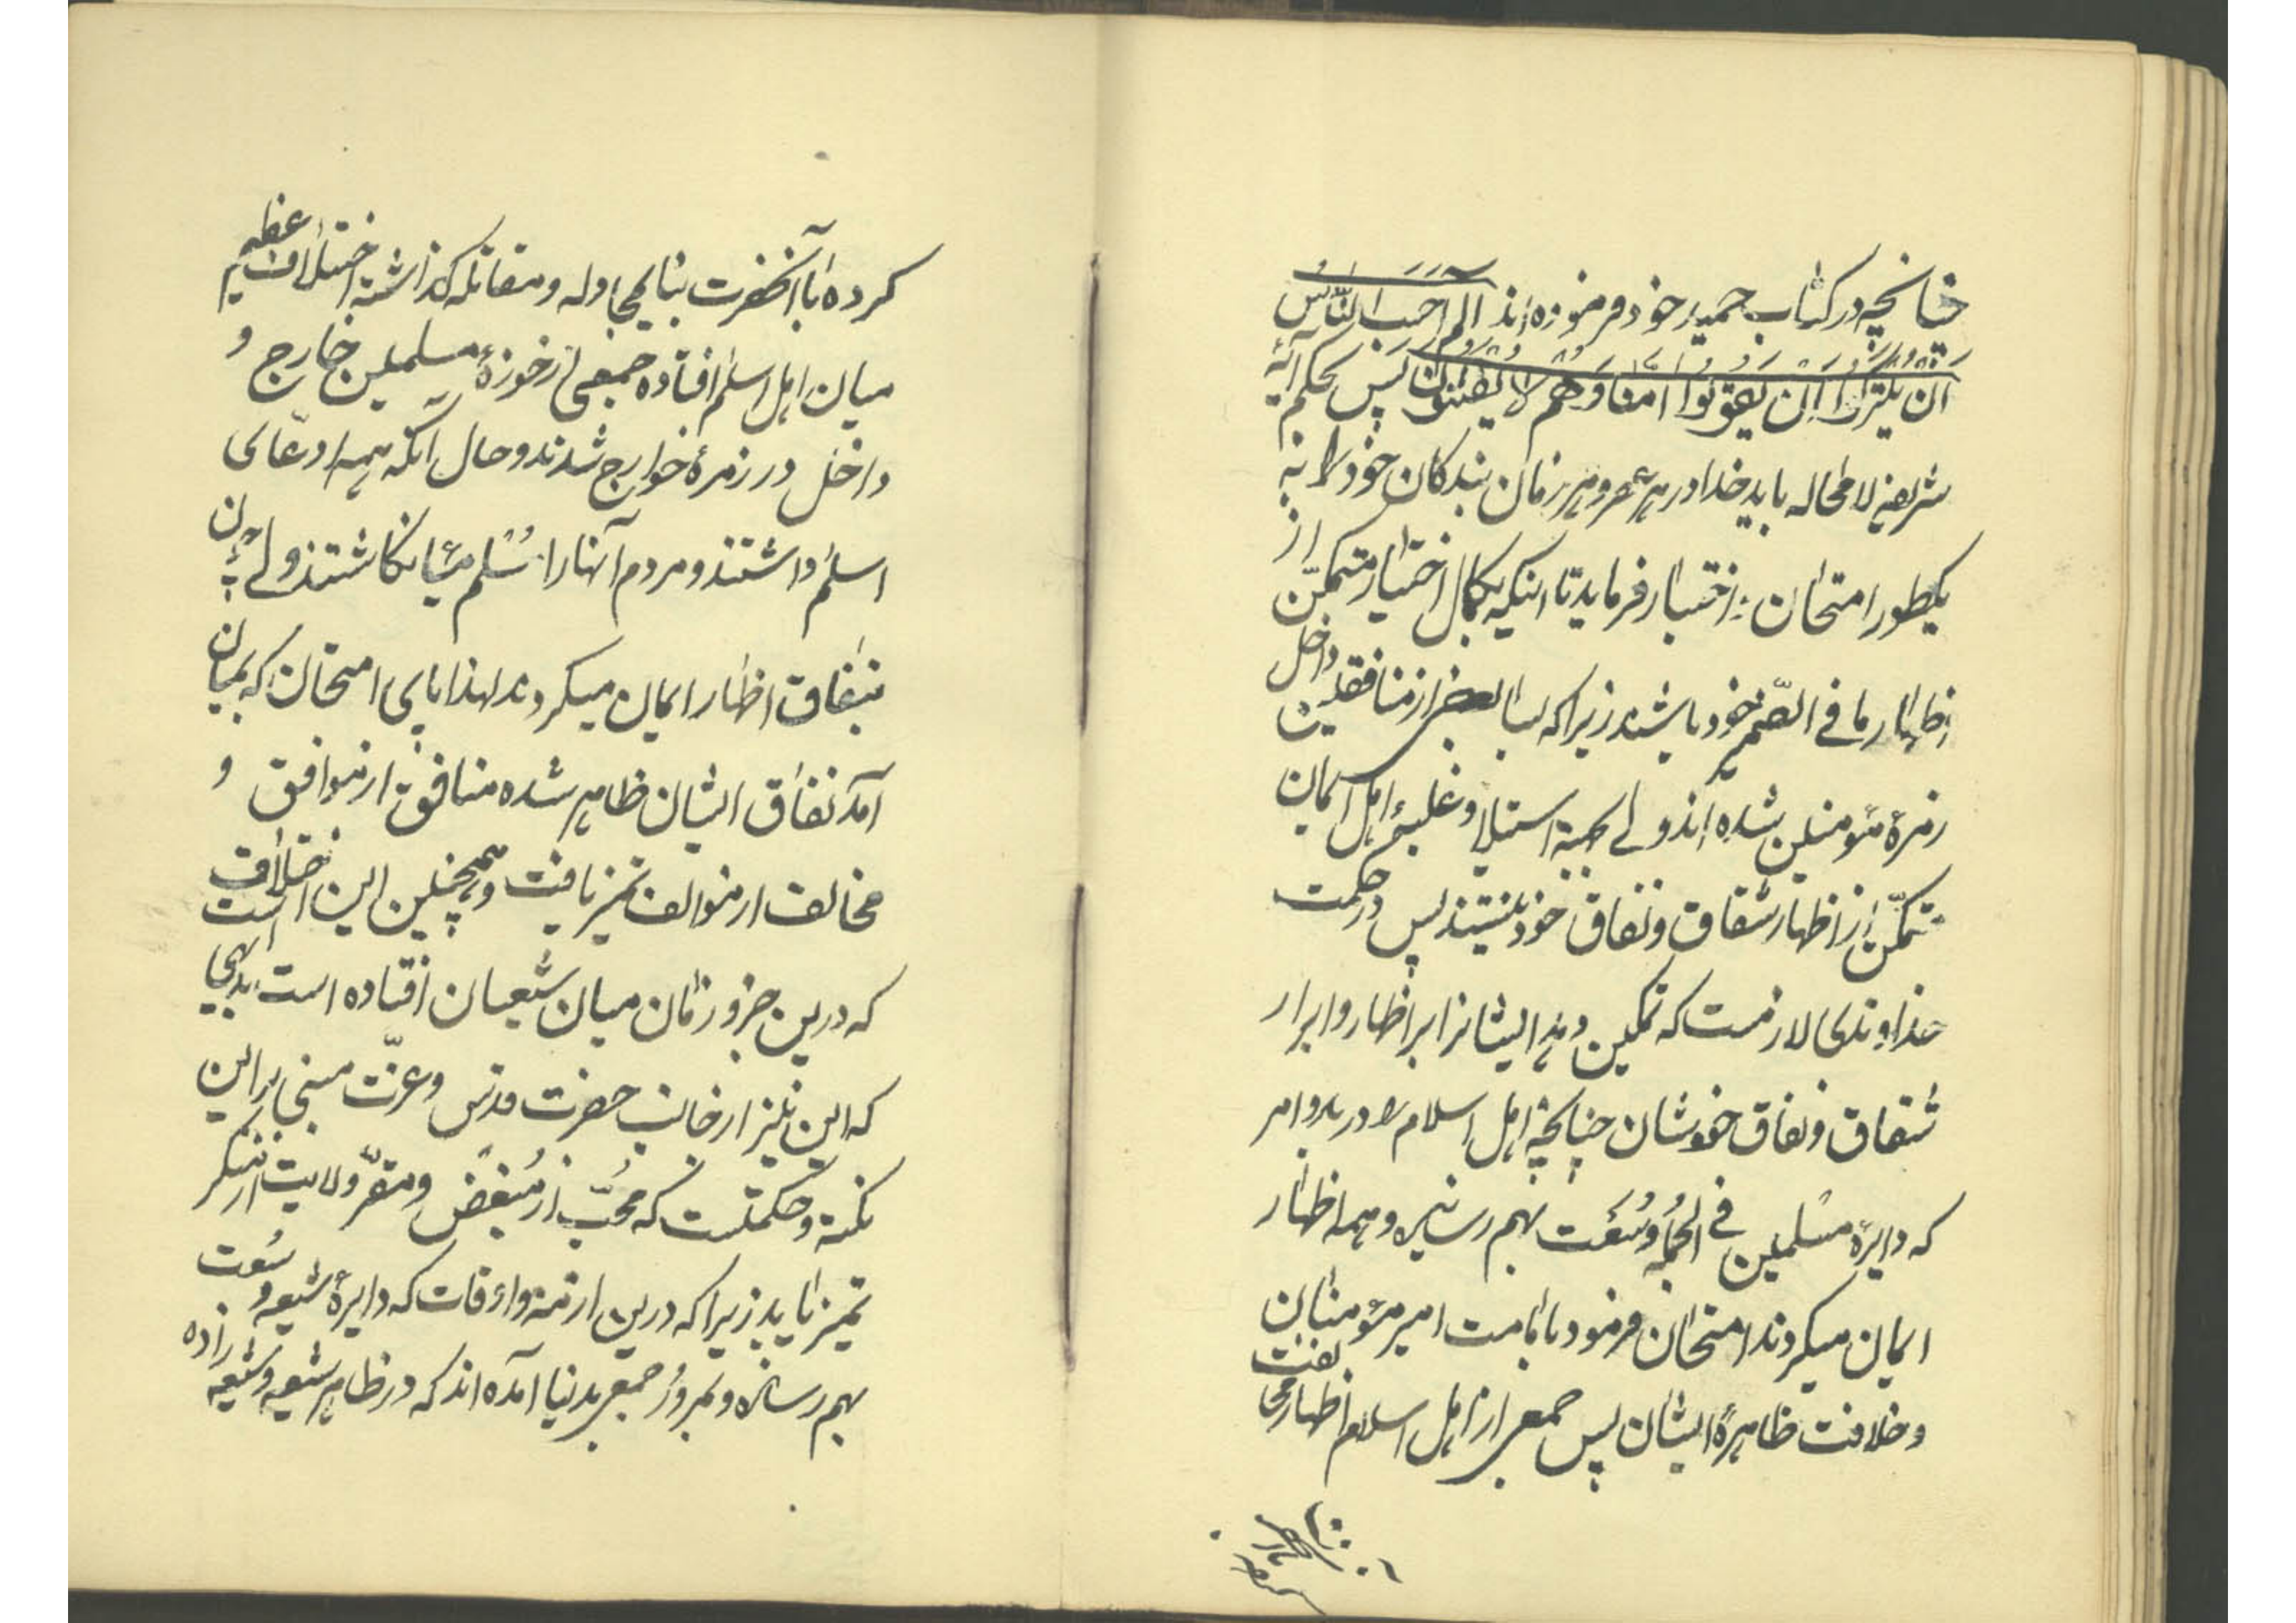 چنانچه در کتاب حمید خود فرموده‌اند الم احَسَبَ النّاسُ
اَنْ یُتْرَکُوا اَنْ یَقُولُوا امَنّا وَهُمْ لا یُفْتَنُونَ پس بحکم آیه
شریفه لامحاله باید خدا در هر عصر و هر زمان بندکان خود را به
یکطور امتحان و اختبار فرماید تا اینکه بکمال اختیار متمکّن از
اظهار ما فی الضّمیر خود باشند زیرا که بسا بعضی از منافقین داخل
زمرهٔ مؤمنین شده‌اند ولی بجهة استیلا و غلبهٔ اهل ایمان
متمکّن از اظهار شقاق و نفاق خود نیستند پس در حکمت
خداوندی لازمست که تمکین دهد ایشانرا بر اظهار و ابراز
شقاق و نفاق خودشان چنانچه اهل اسلام را در بدو امر
که دایرهٔ مسلمین فی الجُمله وُسْعَت بهم رسانیده و همه اظهار
ایمان میکردند امتحان فرمود بامامت امیر مؤمنان
و خلافت ظاهرهٔ ایشان پس جمعی از اهل اسلام اظهار مخالفت
کرده با آنحضرت بنای مجادله و مقاتله گذاشته اختلاف عظیم
میان اهل اسلم افتاده جمعی از حوزهٔ مسلمین خارج و
داخل در زمرهٔ خوارج شدند و حال آنکه همه ادّعای
اسلم داشتند و مردم آنها را مُسْلم می‌انکاشتند ولی چون
بنفاق اظهار ایمان میکردند لهذا پای امتحان که بمیان
آمد نفاق ایشان ظاهر شده منافق از موافق و
مخالف از موالف تمیز یافت و همچنین این اختلاف است
که درین جزو زمان میان شیعیان افتاده است بدیهی است
که این نیز از جانب حضرت قدس و عزّت مبنی بر این
نکته و حکمتست که محبّ از مُبغض و مقرّ ولایت از منکر
تمیز یابد زیرا که درین ازمنه و اوقات که دایرهٔ شیعه وُسْعت
بهم رسانده و بمرور جمعی بدنیا آمده‌اند که در ظاهر شیعه و شیعه زاده